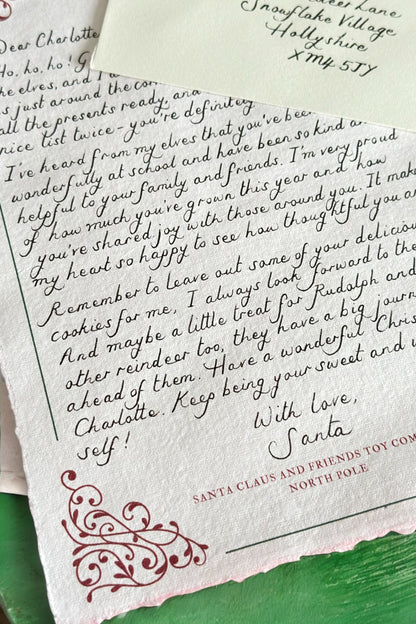 Lane
Snowflake Village
Hollyshire
XM4 5JY
Dear Charlotte
Ho, ho, ho! G
the elves, and I
is just around the
all the presents ready, and
nice list twice - you're definitely
I've heard from my elves that you've been
wonderfully at school and have been so kind an
helpful to your family and friends. I'm very proud
of how much you've grown this year and how
you've shared joy with those around you. It make
my heart so happy to see how thoughtful you ar
Remember to leave out some of your delicious
cookies for me, I always look forward to the
And maybe a little treat for Rudolph and
other reindeer too, they have a big journ
ahead of them. Have a wonderful Chris
Charlotte. Keep being your sweet and
self!
With love,
Santa
SANTA CLAUS AND FRIENDS TOY COM
NORTH POLE